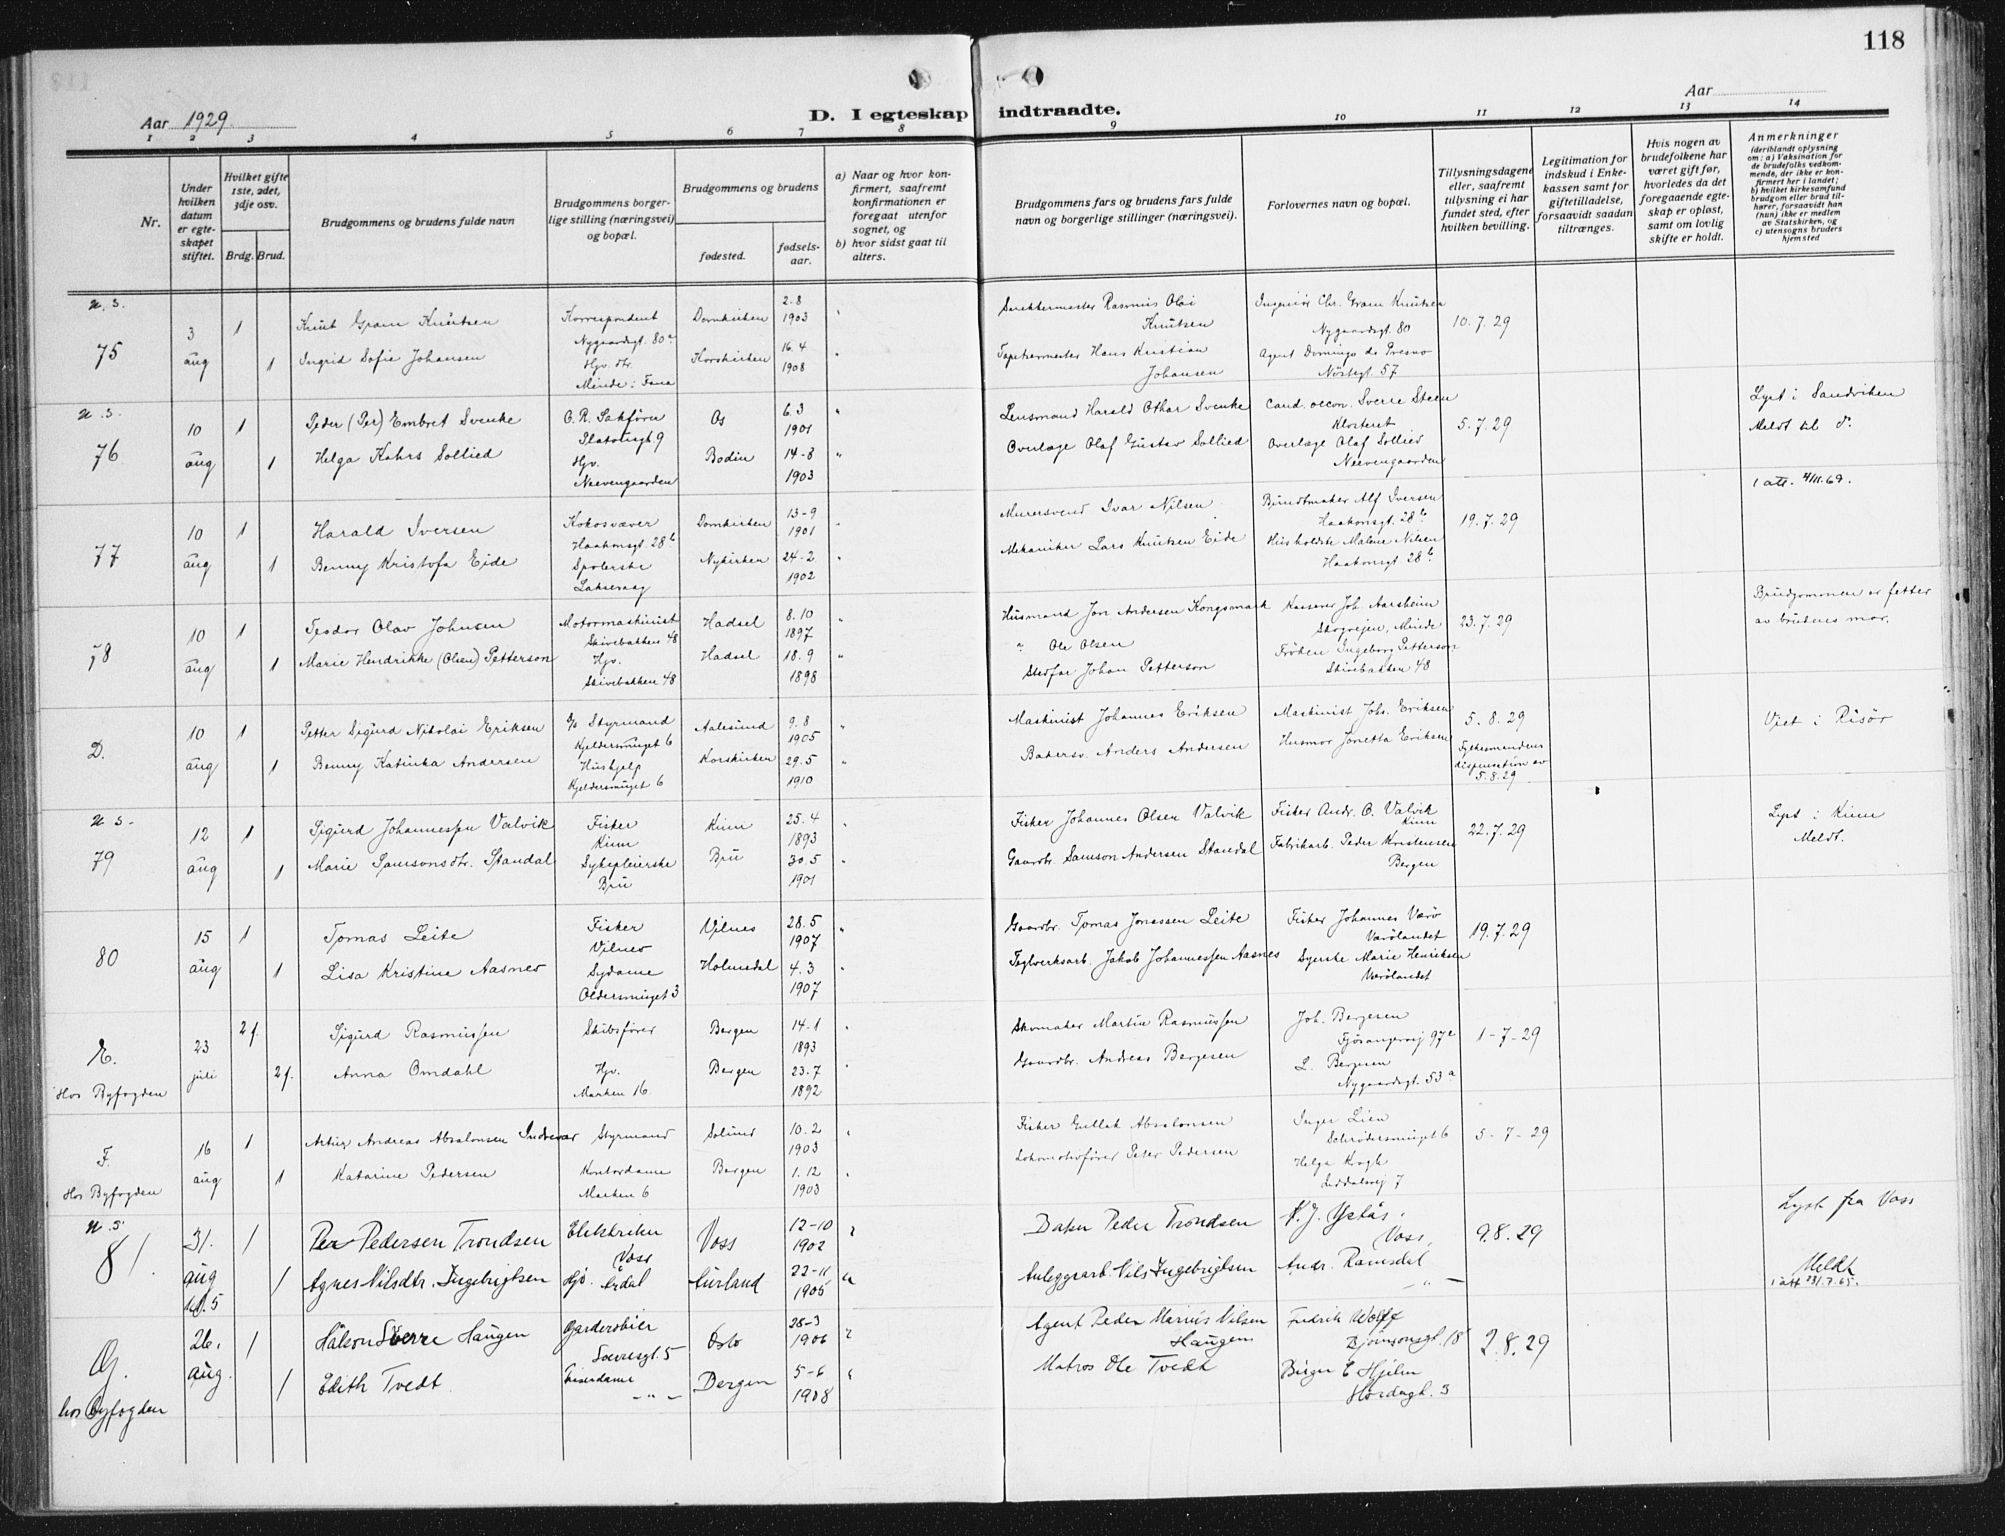 118
Aar 1929.
D. I egteskap indtraadte.
Aar
1 2 3 4 5 6 7 8 9 10 11 12 13 14
Nr.
Under hvilken datum er egte-skapet stiftet.
Hvilket gifte 1ste, 2det, 3dje osv.
Brdg. Brud.
Brudgommens og brudens fulde navn
Brudgommens borger-lige stilling (næringsvei) og bopæl.
Brudgommens og brudens
fødested.
fødsels-aar.
a) Naar og hvor kon-firmert, saafremt konfirmationen er foregaat utenfor sognet, og
b) hvor sidst gaat til alters.
Brudgommens fars og brudens fars fulde navn og borgerlige stillinger (næringsvei).
Forlovernes navn og bopæl.
Tillysningsdagene eller, saafremt tillysning ei har fundet sted, efter hvilken bevilling.
Legitimation for indskud i Enke-kassen samt for giftetilladelse, forsaavidt saadan tiltrænges.
Hvis nogen av brudefolkene har været gift før, hvorledes da det foregaaende egte-skap er opløst, samt om lovlig skifte er holdt.
Anmerkninger
(deriblandt oplysning om: a) Vaksination for de brudefolks vedkom-mende, der ikke er kon-firmert her i landet; b) hvilket kirkesamfund brudgom eller brud til-hører, forsaavidt han (hun) ikke er medlem av Statskirken, og c) utensogns bruders hjemsted
U. S.
75
3 aug
1
Knut Gram Knutsen
Korrespondent
Nygaardsgt. 80a
Domkirken
2.8 1903
Rasmus Olai Knutsen
Ingeniør Chr. Gram Knutsen
Nygaardsgt. 80
10.7.29
1
Ingrid Sofie Johansen
Hjv. dtr.
Minde i Fana
Korskirken
16.4 1908
Tapetsermester Hans Kristian Johansen
Agent Domingo de Presno
Nøstegt. 57
U. S.
76
10 aug
1
Peder (Per) Embret Svenke
O. R. Sakfører
Os
6.3 1901
Lensmand Harald Othar Svenke
Cand. oecon. Sverre Steen
Klosteret
5.7.29
Lyst i Sandviken
Meldt til do.
1
Helga Kahrs Sollied
Hjv.
Neevengaarden
Bodin
14-8 1903
Overlæge Olaf Gustav Sollied
Overlæge Olaf Sollied
Neevengaarden
1 att. 4/11.69.
77
10 aug
1
Harald Iversen
Kokosvæver
Haakonsgt. 28b
Domkirken
13-9 1901
Murersvend Ivar Nilsen
Bundtmaker Alf Iversen
Haakonsgt. 28b
19.7.29
1
Benny Kristofa Eide
Spolerske
Laksevaag
Nykirken
24-2 1902
Mekaniker Lars Knutsen Eide
Husholdste Malene Nilsen
Haakonsgt 28b
78
10 aug
1
Teodor Olav Johnsen
Motormaskinist
Skivebakken 48
Hadsel
8.10 1897
Husmand Jon Andersen Kongsmark
Kasserer Joh. Aarsheim
Skogveien, Minde
23.7.29
Brudgommen er fetter
av brudens mor.
1
Marie Hendrikke (Olsen) Petterson
Hjv.
Skivebakken 48
Hadsel
18.9 1898
" Ole Olsen
Stedfar Johan Petterson
Frøken Ingeborg Petterson
Skivebakken 48
D.
10 aug
1
Petter Sigurd Nikolai Eriksen
Styrmand
Kjeldersmuget 6
Aalesund
9.8 1905
Maskinist Johannes Eriksen
Maskinist Johs. Eriksen
5.8.29
Viet i Risör
1
Benny Katinka Andersen
Hushjelp
Kjeldersmuget 6
Korskirken
29.5 1910
Bakersv. Anders Andersen
Husmor Jonetta Eriksen
Fylkesmandens
dispensation av
5.8.29
U. S.
79
12 aug
1
Sigurd Johannessen Valvik
Fisker
Kinn
Kinn
25.4 1893
Fisker Johannes Olsen Valvik
Fisker Andr. O. Valvik
Kinn
22.7.29
Lyst i Kinn
Meldt.
1
Marie Samsonsdtr. Standal
Sykepleierske
Bru
Bru
30.5 1901
Gaardbr. Samson Andersen Standal
Fabrikarb. Peder Kristensen
Bergen
80
15 aug
1
Tomas Leite
Fisker
Vilnes
Vilnes
28.5 1907
Gaardbr. Tomas Jonassen Leite
Fisker Johannes Værö
Værölandet
19.7.29
1
Lisa Kristine Aasnes
Sydame
Oldersmuget 3
Holmedal
4.3 1907
Teglverksarb. Jakob Johannessen Aasnes
Syerske Marie Henriksen
Værölandet
E.
Hos Byfogden
23 juli
2 f.
Sigurd Rasmussen
Skibsfører
Bergen
14-1 1893
Skomaker Martin Rasmussen
Joh. Bergesen
Fjøsangervej 97c
1-7-29
2 f.
Anna Omdahl
Hjv.
Marken 16
Bergen
23.7 1892
Gaardbr. Andreas Bergesen
L. Bergesen
Nygaardsgt. 53a
F.
Hos Byfogden
16 aug
1
Artur Andreas Absalonsen Indrevær
Styrmand
Solund
10.2 1903
Fisker Absalonsen
Inger Lien
Schrødersmuget 6
5-7-29
1
Katarine Pedersen
Kontordame
Marken 6
Bergen
1.12 1903
Lokomotivfører Peter Pedersen
Helga Krogh
7
U. S.
81.
31. aug
1
Per Pedersen Trondsen
Elektriker
Voss
Voss
12-10 1902
Baker Peder Trondsen
Voss,
9.8.29
Lyst fra Voss
1
Agnes Nilsdtr. Ingebrigtsen
Hjv. Årdal
Aurland
22-11 1905
Anleggsarb. Nils Ingebrigtsen
Andr. Ramsdal
" —
Meldt
1 att 23/.7.65.
G.
hos Byfogden
26. aug.
1
Håkon Sverre Haugen
Garderobier
Sverresgt. 5
Oslo
28-3 1906
Agent Peder Marius Nilsen Haugen
Fredrik Wolff
Bjørnsonsgt. 18
2.8.29
1
Edith Tvedt
— " —
Bergen
5-6 1908
Matros Ole Tvedt
Birger E Hjelm
Hordagt. 3